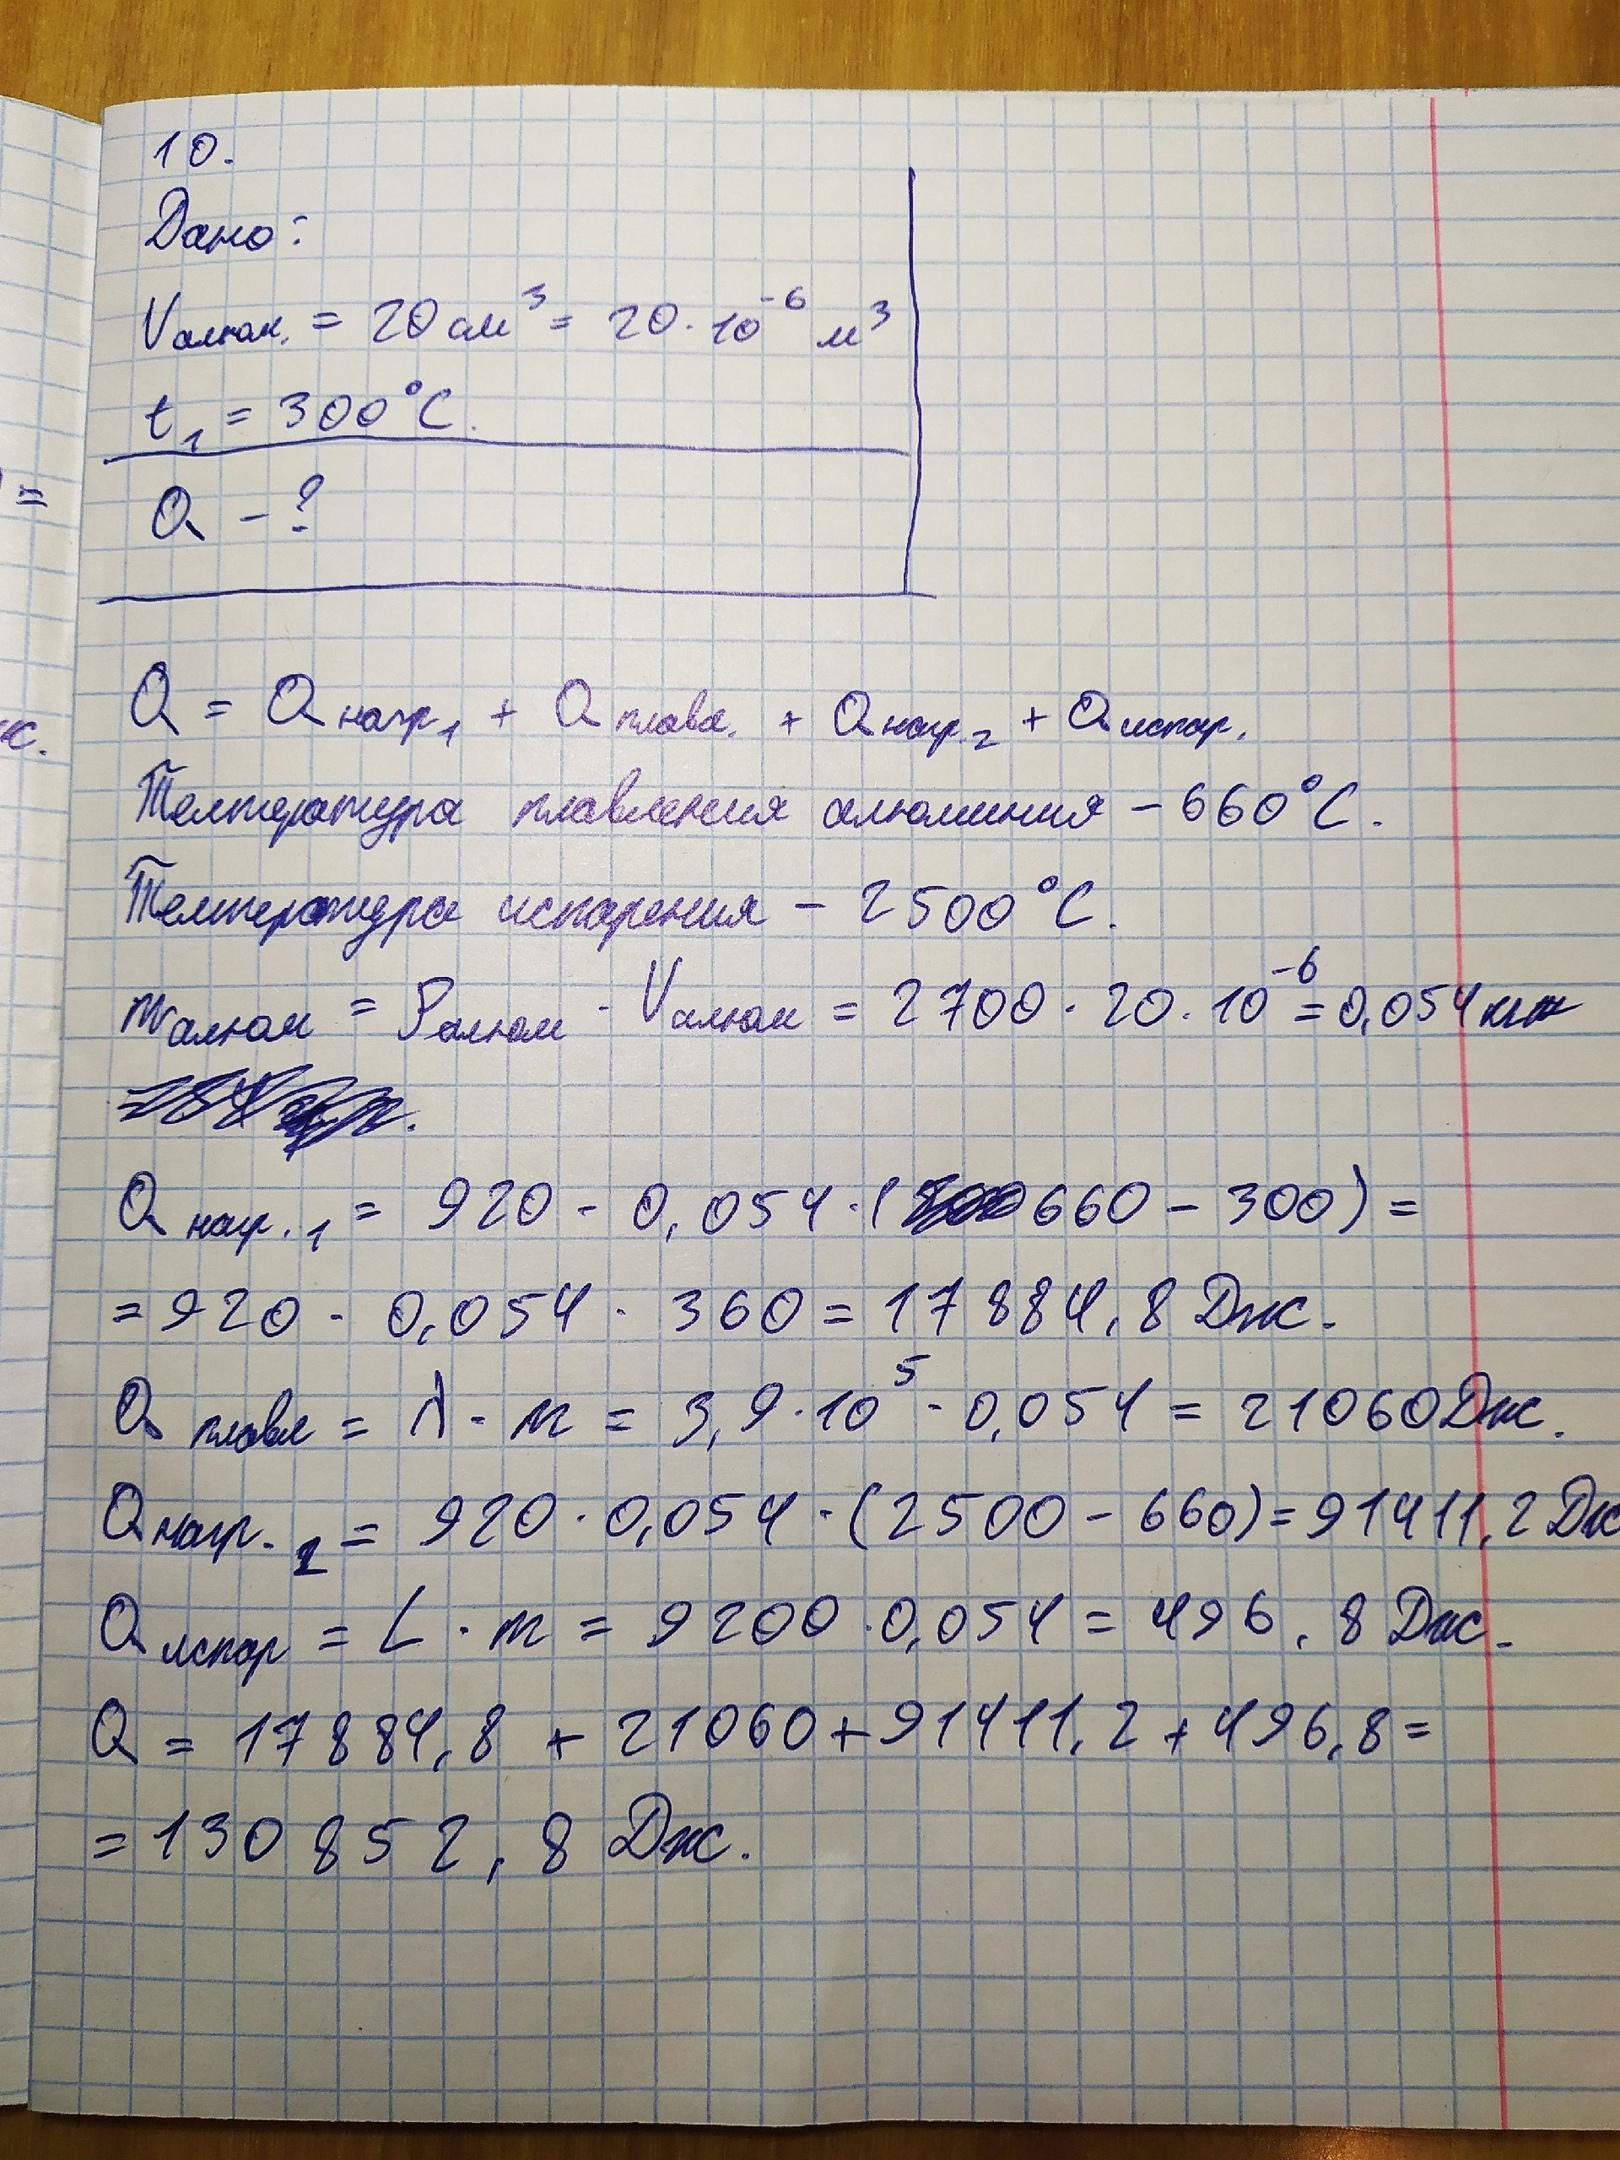 10.
Дано:
Vалюм. = 20 см³ = 20 · 10⁻⁶ м³
t₁ = 300°C.
Q - ?
=
ж.
Q = Qнагр₁ + Qплавл. + Qнагр.₂ + Qиспар.
Температура плавления алюминия - 660°C.
Температура испарения - 2500°C.
mалюм = ρалюм · Vалюм = 2700 · 20 · 10⁻⁶ = 0,054 кг
Qнагр.₁ = 920 · 0,054 · (660 - 300) =
= 920 · 0,054 · 360 = 17884,8 Дж.
Qплавл = λ · m = 3,9 · 10⁵ · 0,054 = 21060 Дж.
Qнагр.₂ = 920 · 0,054 · (2500 - 660) = 91411,2 Дж
Qиспар = L · m = 9200 · 0,054 = 496,8 Дж.
Q = 17884,8 + 21060 + 91411,2 + 496,8 =
= 130852,8 Дж.